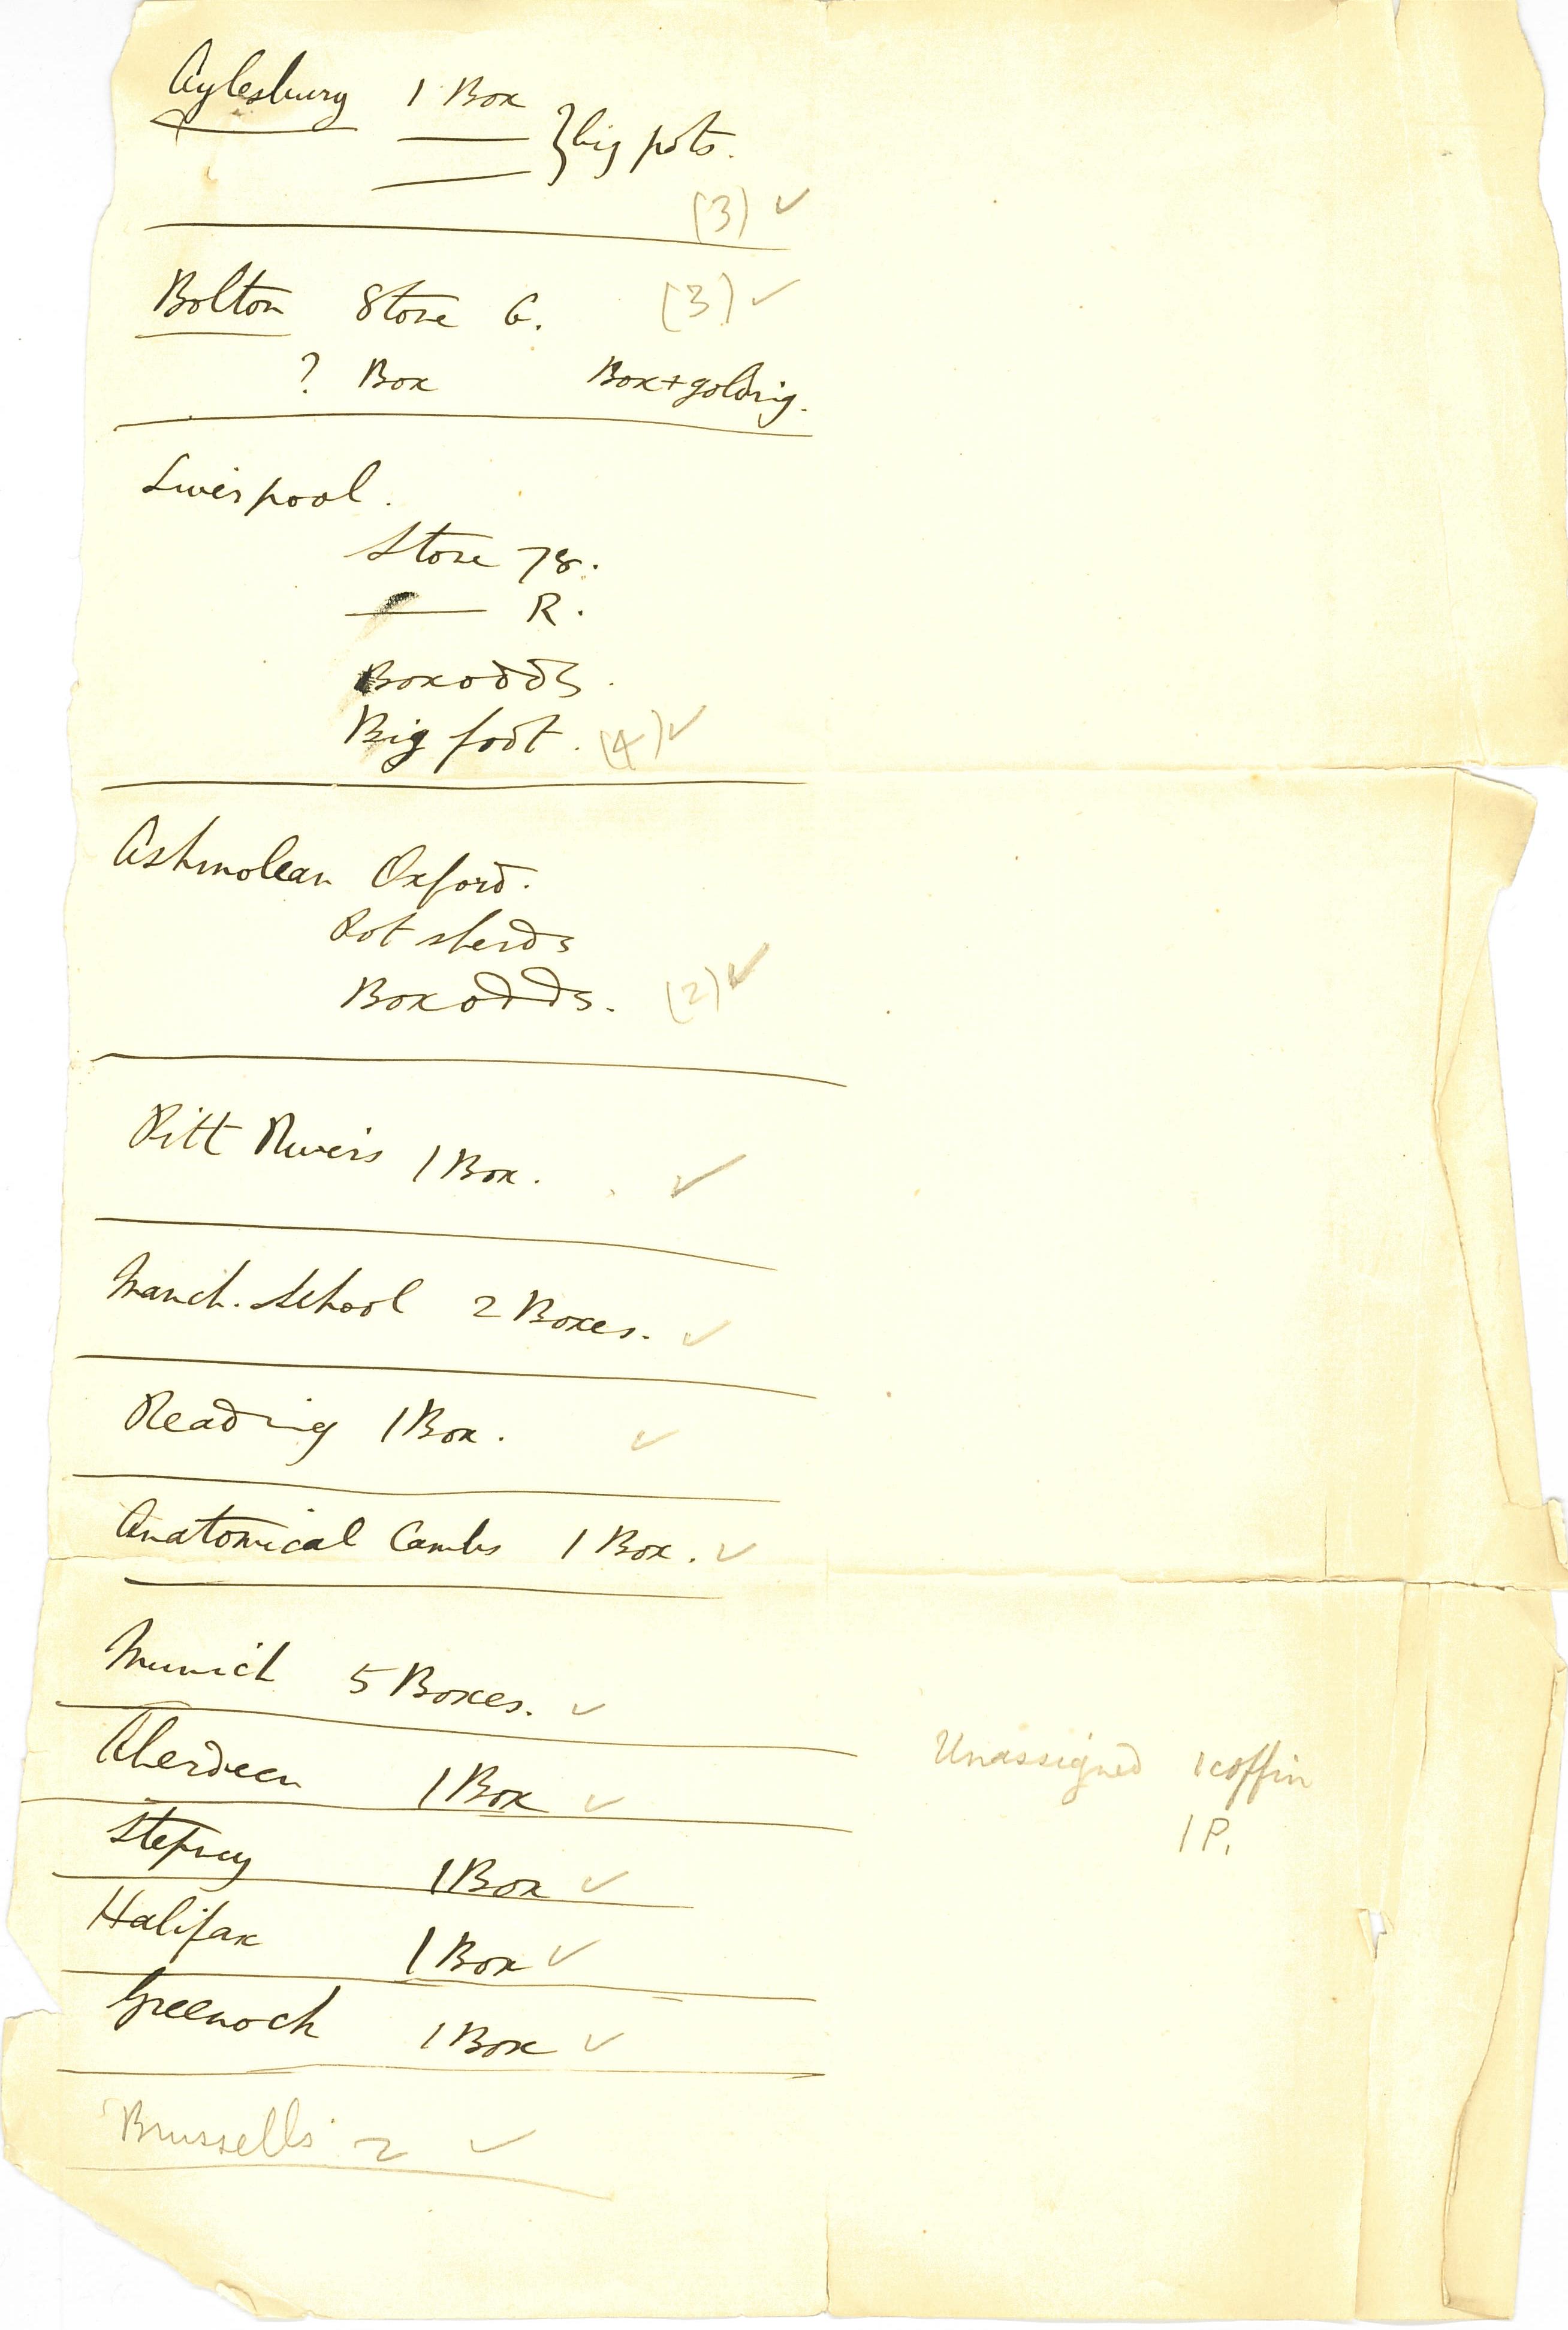 Aylesbury 1 Box
—— } big pots.
——
(3) ✓
Bolton Stone G. (3) ✓
? Box Box + gold rig.
Liverpool.
Stone 78.
—— R.
Box odds.
Big foot. (4) ✓
Ashmolean Oxford.
Pot sherds
Box odds. (2) ✓
Pitt Rivers 1 Box. ✓
Manch. School 2 Boxes. ✓
Reading 1 Box. ✓
Anatomical Cambs 1 Box. ✓
Munich 5 Boxes. ✓
Aberdeen 1 Box ✓
Stepney 1 Box ✓
Halifax 1 Box ✓
Greenock 1 Box ✓
Brussells 2 ✓
Unassigned 1 coffin
1 P.